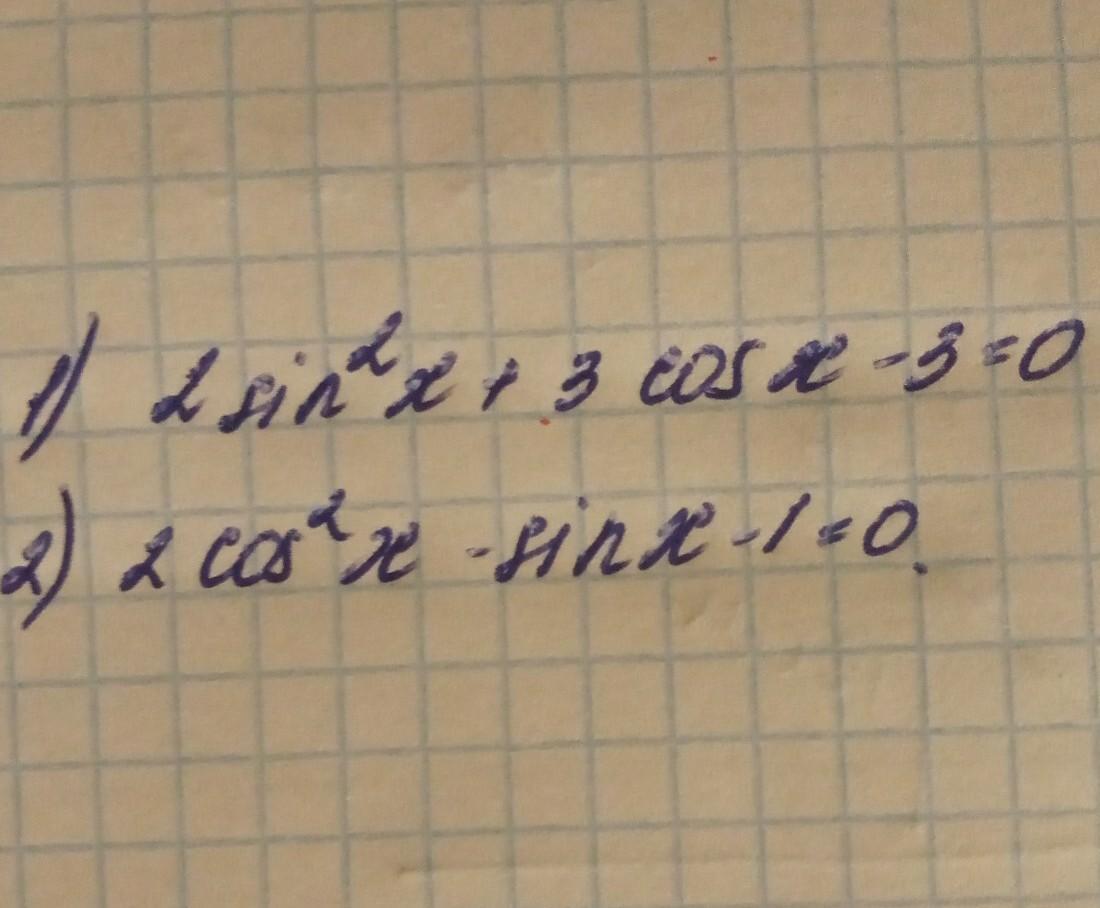 1) 2 sin²x + 3 cos x - 3 = 0
2) 2 cos²x - sin x - 1 = 0.